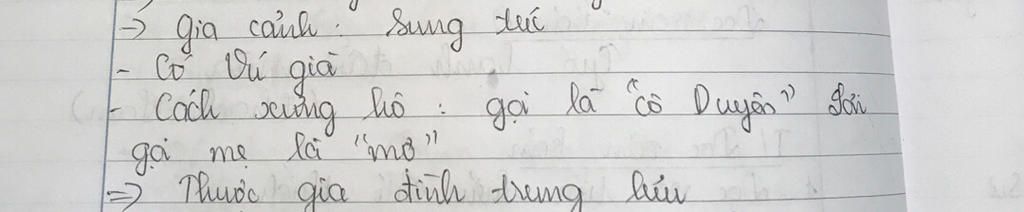 → gia cảnh : Sung túc
- Có Vú già
- Cách xưng hô : gọi là "cô Duyên" Sơn
gọi mẹ là "mợ"
=> Thuộc gia đình trung lưu